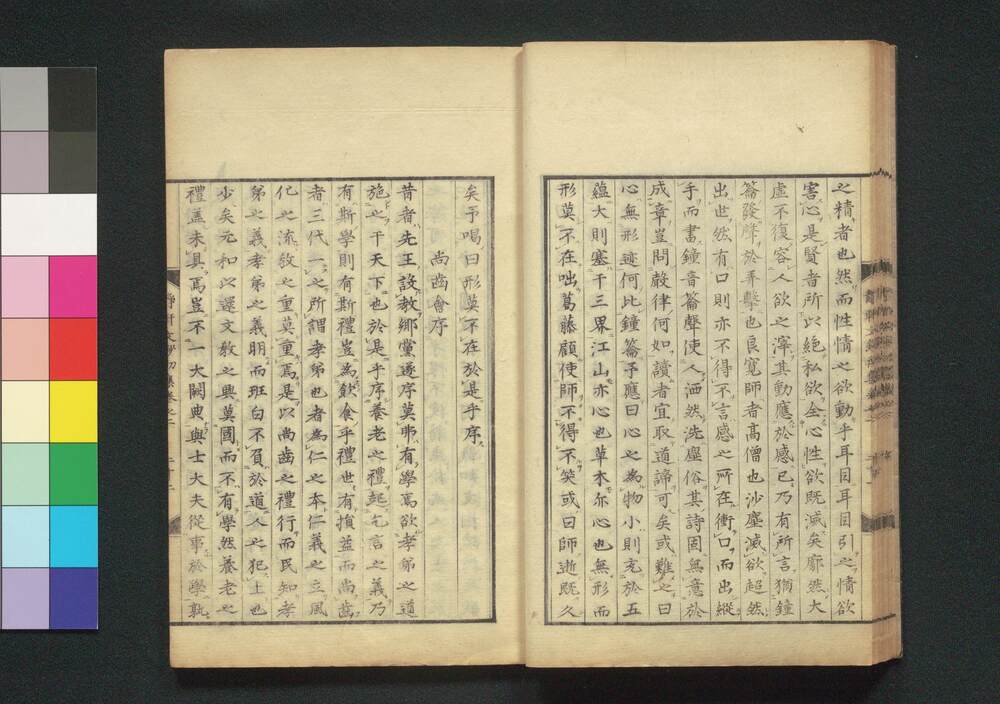 之精者也然而性情之欲動乎耳目耳目引之情欲
害心是賢者所以絶私欲全心性欲既滅矣廓然大
虚不復容人欲之滓其動應於感已乃有所言猶鐘
籥發聲於弄擊也良寛師者高僧也沙塵滅欲超然
出世然有口則亦不得不言感之所在衝口而出縱
手而書鐘音籥聲使人洒然洗塵俗其詩固無意於
成章豈問嚴律何如讀者宜取道諦可矣或難之曰
心無形迹何比鐘籥予應曰心之為物小則充於五
蘊大則塞于三界江山亦心也草木亦心也無形而
形莫不在咄葛藤顧使師不得不笑或曰師逝既久
矣予喝曰形莫不在於是乎序
尚齒會序
昔者先王設教鄉黨遂序莫弗有學焉欲孝弟之道
施之于天下也於是乎序養老之禮起乞言之義乃
有斯學則有斯禮豈為飲食乎禮世有損益而尚齒
者三代一之所謂孝弟也者為仁之本仁義之立風
化之流教之重莫重焉是以尚齒之禮行而民知孝
弟之義孝弟之義明而班白不負於道人之犯上也
少矣元和以還文教之興莫國而不有學然養老之
禮蓋未具焉豈不一大闕典與士大夫從事於學孰